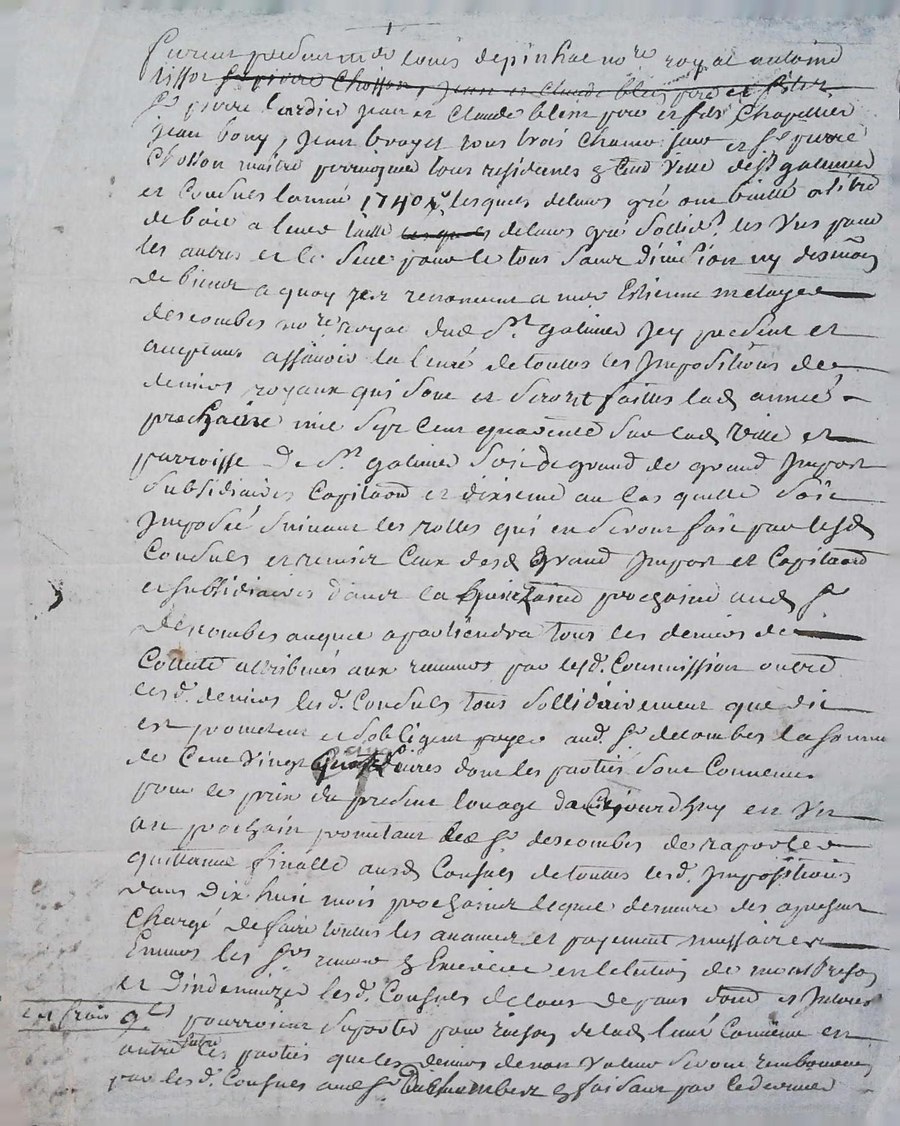 furent presents me louis depinhac no.re royal antoine
tissot sr pierre Chosson, jean et claude blein pere et fils
sr pierre jean et Claude blein pere et fils Chapellier
jean bony, jean tous trois et sr pierre
Chosson maitre perruquier tous residents en lad ville de st galmier
et Consuls lannée 1740 lesquels de leurs gré ont baillé a titre
de baie a leurs taille lesquels de leurs gré sollid.t les uns pour
les autres et le seul pour le tous sans division ny
de biens a quoy renoncent a me Estienne metayer
descombes no.re royal dud st galmier jcy present et
acceptant assavoir la levé de toutes les Impositions de
deniers royaux qui sont et seront faittes lad année
prochaine mil sept cent quarente sur lad ville et
parroisse de st galmier soit de grand Impost
subsidiaires Capitaon et dixieme au cas quelle soit
Imposée suivant les rolles qui en seront fait par lesd
Consuls et remis Ceux desd grand Impost et Capitaon
et subsidiaires dans la quinzaine prochaine aud sr
descombes auquel apartiendra tous les deniers de
Collecte attribués aux par lesd. Commission outre
lesd. deniers lesd. Consuls tous sollidairement que dit
est promettent et sobligent payer aud. sr descombes la somme
de Cent vingt livres dont les parties sont Convenues
pour le prix du present louage daujourdhuy en un
an prochain promettant led sr descombes de raporter
quittance finalle ausd Consuls de toutes lesd. Impositions
dans dix huit mois prochains lequel demeure des apresent
Chargé de faire toutes les avances et payement necessaires
Envers les srs en Exercice en lelection de montbrison
et dindemnizer lesd. Consuls de tous depans domd et Interest
et frais qls pourroient suporter pour raison de lad levé Convenu en
outre entre les parties que les deniers de non valeur seront remboursés
par lesd. Consuls aud sr Descombes en faisant par ledernier